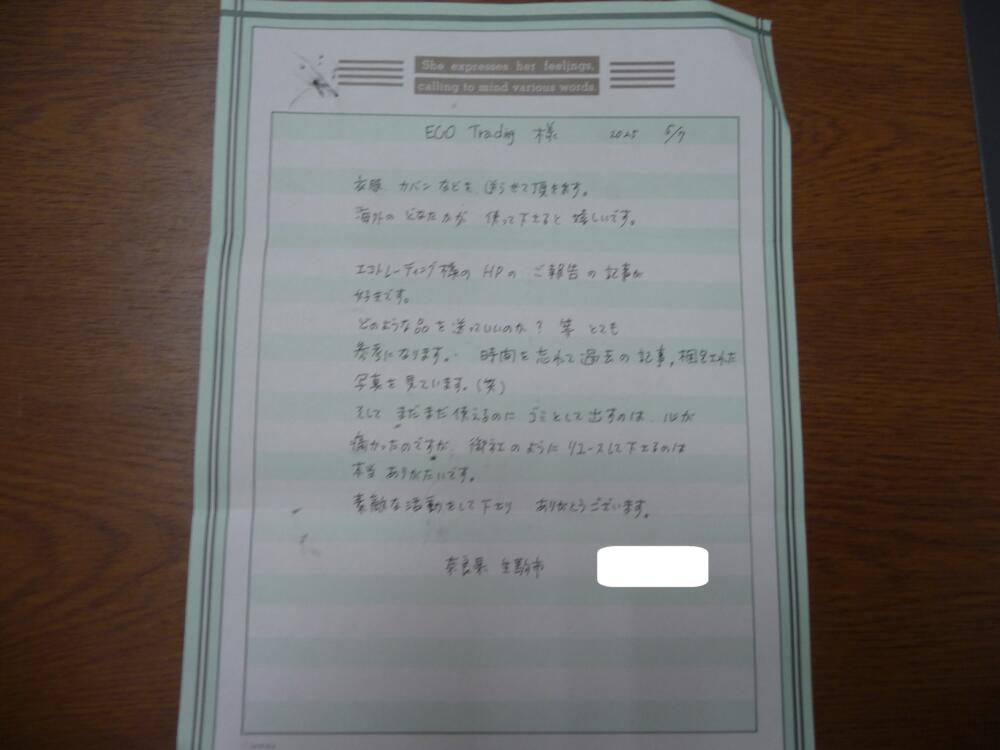 She expresses her feelings,
calling to mind various words.
ECO Trading 様 2025 5/7
衣服、カバンなどを送らせて頂きます。
海外のどなたかが 使って下さると 嬉しいです。
エコトレーディング様の HPの ご報告の記事が
好きです。
どのような品を送っていいのか? 等 とても
参考になります。 時間を忘れて過去の記事、梱包された
写真を見ています。(笑)
そして まだまだ使えるのに ゴミとして出すのは、心が
痛かったのですが、御社のように リユースして下さるのは
本当 ありがたいです。
素敵な活動をして下さり ありがとうございます。
奈良県 生駒市